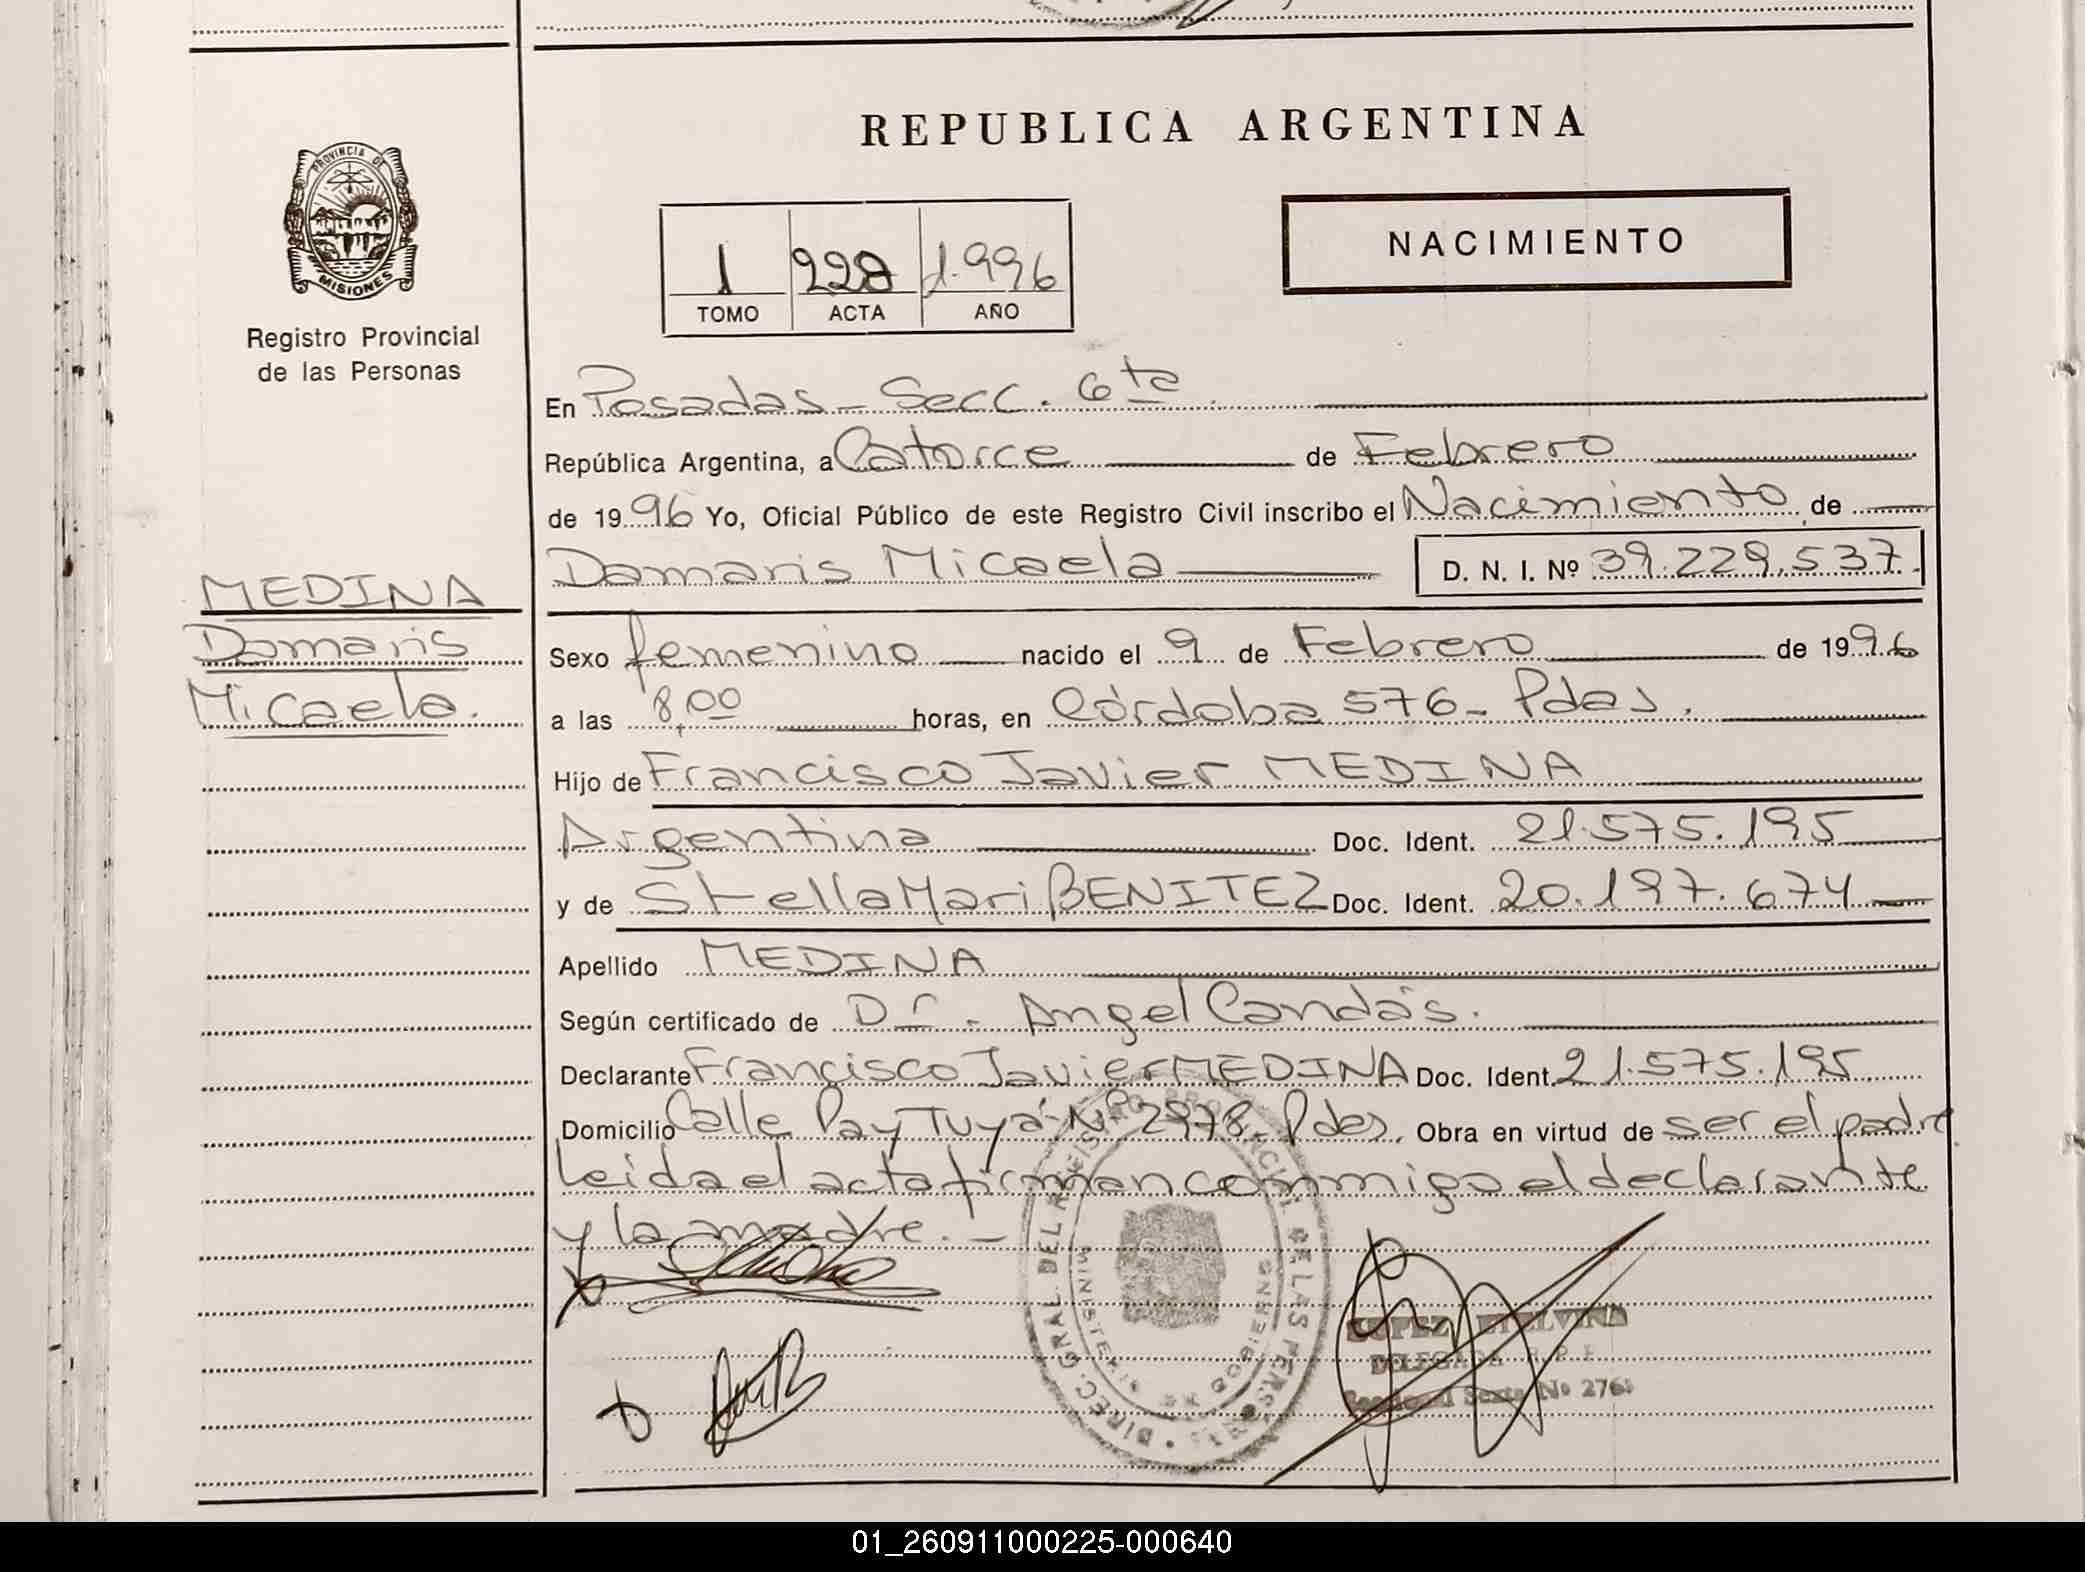 REPUBLICA ARGENTINA
PROVINCIA DE
MISIONES
Registro Provincial
de las Personas
NACIMIENTO
1 228 1.996
TOMO ACTA AÑO
En Posadas - Secc. 6ta.
República Argentina, a Catorce de Febrero
de 1996 Yo, Oficial Público de este Registro Civil inscribo el Nacimiento de
Damaris Micaela D. N. I. Nº 39.229.537.
MEDINA
Damaris
Micaela.
Sexo femenino nacido el 9 de Febrero de 1996
a las 8,00 horas, en Córdoba 576 - Pdas.
Hijo de Francisco Javier MEDINA
Argentina Doc. Ident. 21.575.195
y de Stella Mari BENITEZ Doc. Ident. 20.197.674
Apellido MEDINA
Según certificado de Dr. Angel Candás.
Declarante Francisco Javier MEDINA Doc. Ident. 21.575.195
Domicilio Calle Pay Tuyá Nº 2978 - Pdas. Obra en virtud de ser el padre
Leida el acta firman conmigo el declarante
y la madre. -
DIREC. GRAL. DEL REGISTRO PROVINCIAL DE LAS PERSONAS
MINISTERIO GOBIERNO
LOPEZ ETELVINA
DELEGADA R.P.P.
Seccional Sexta Nº 276
01_260911000225-000640